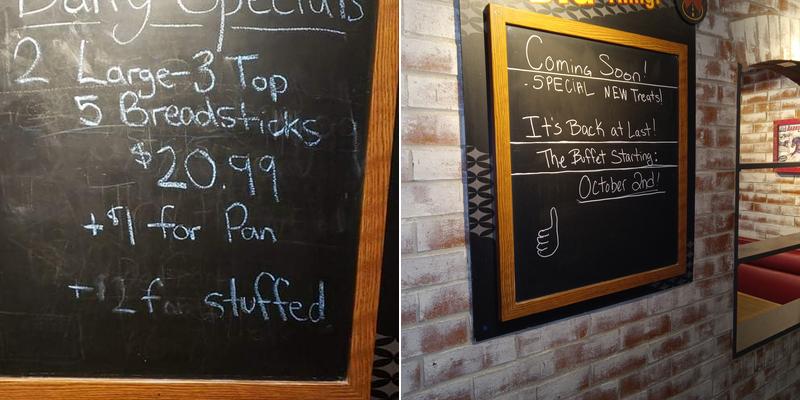 Daily Specials
2 Large-3 Top
5 Breadsticks
$20.99
+$1 for Pan
+$2 for stuffed
Coming Soon!
- SPECIAL NEW Treats!
It's Back at Last!
The Buffet Starting:
October 2nd!